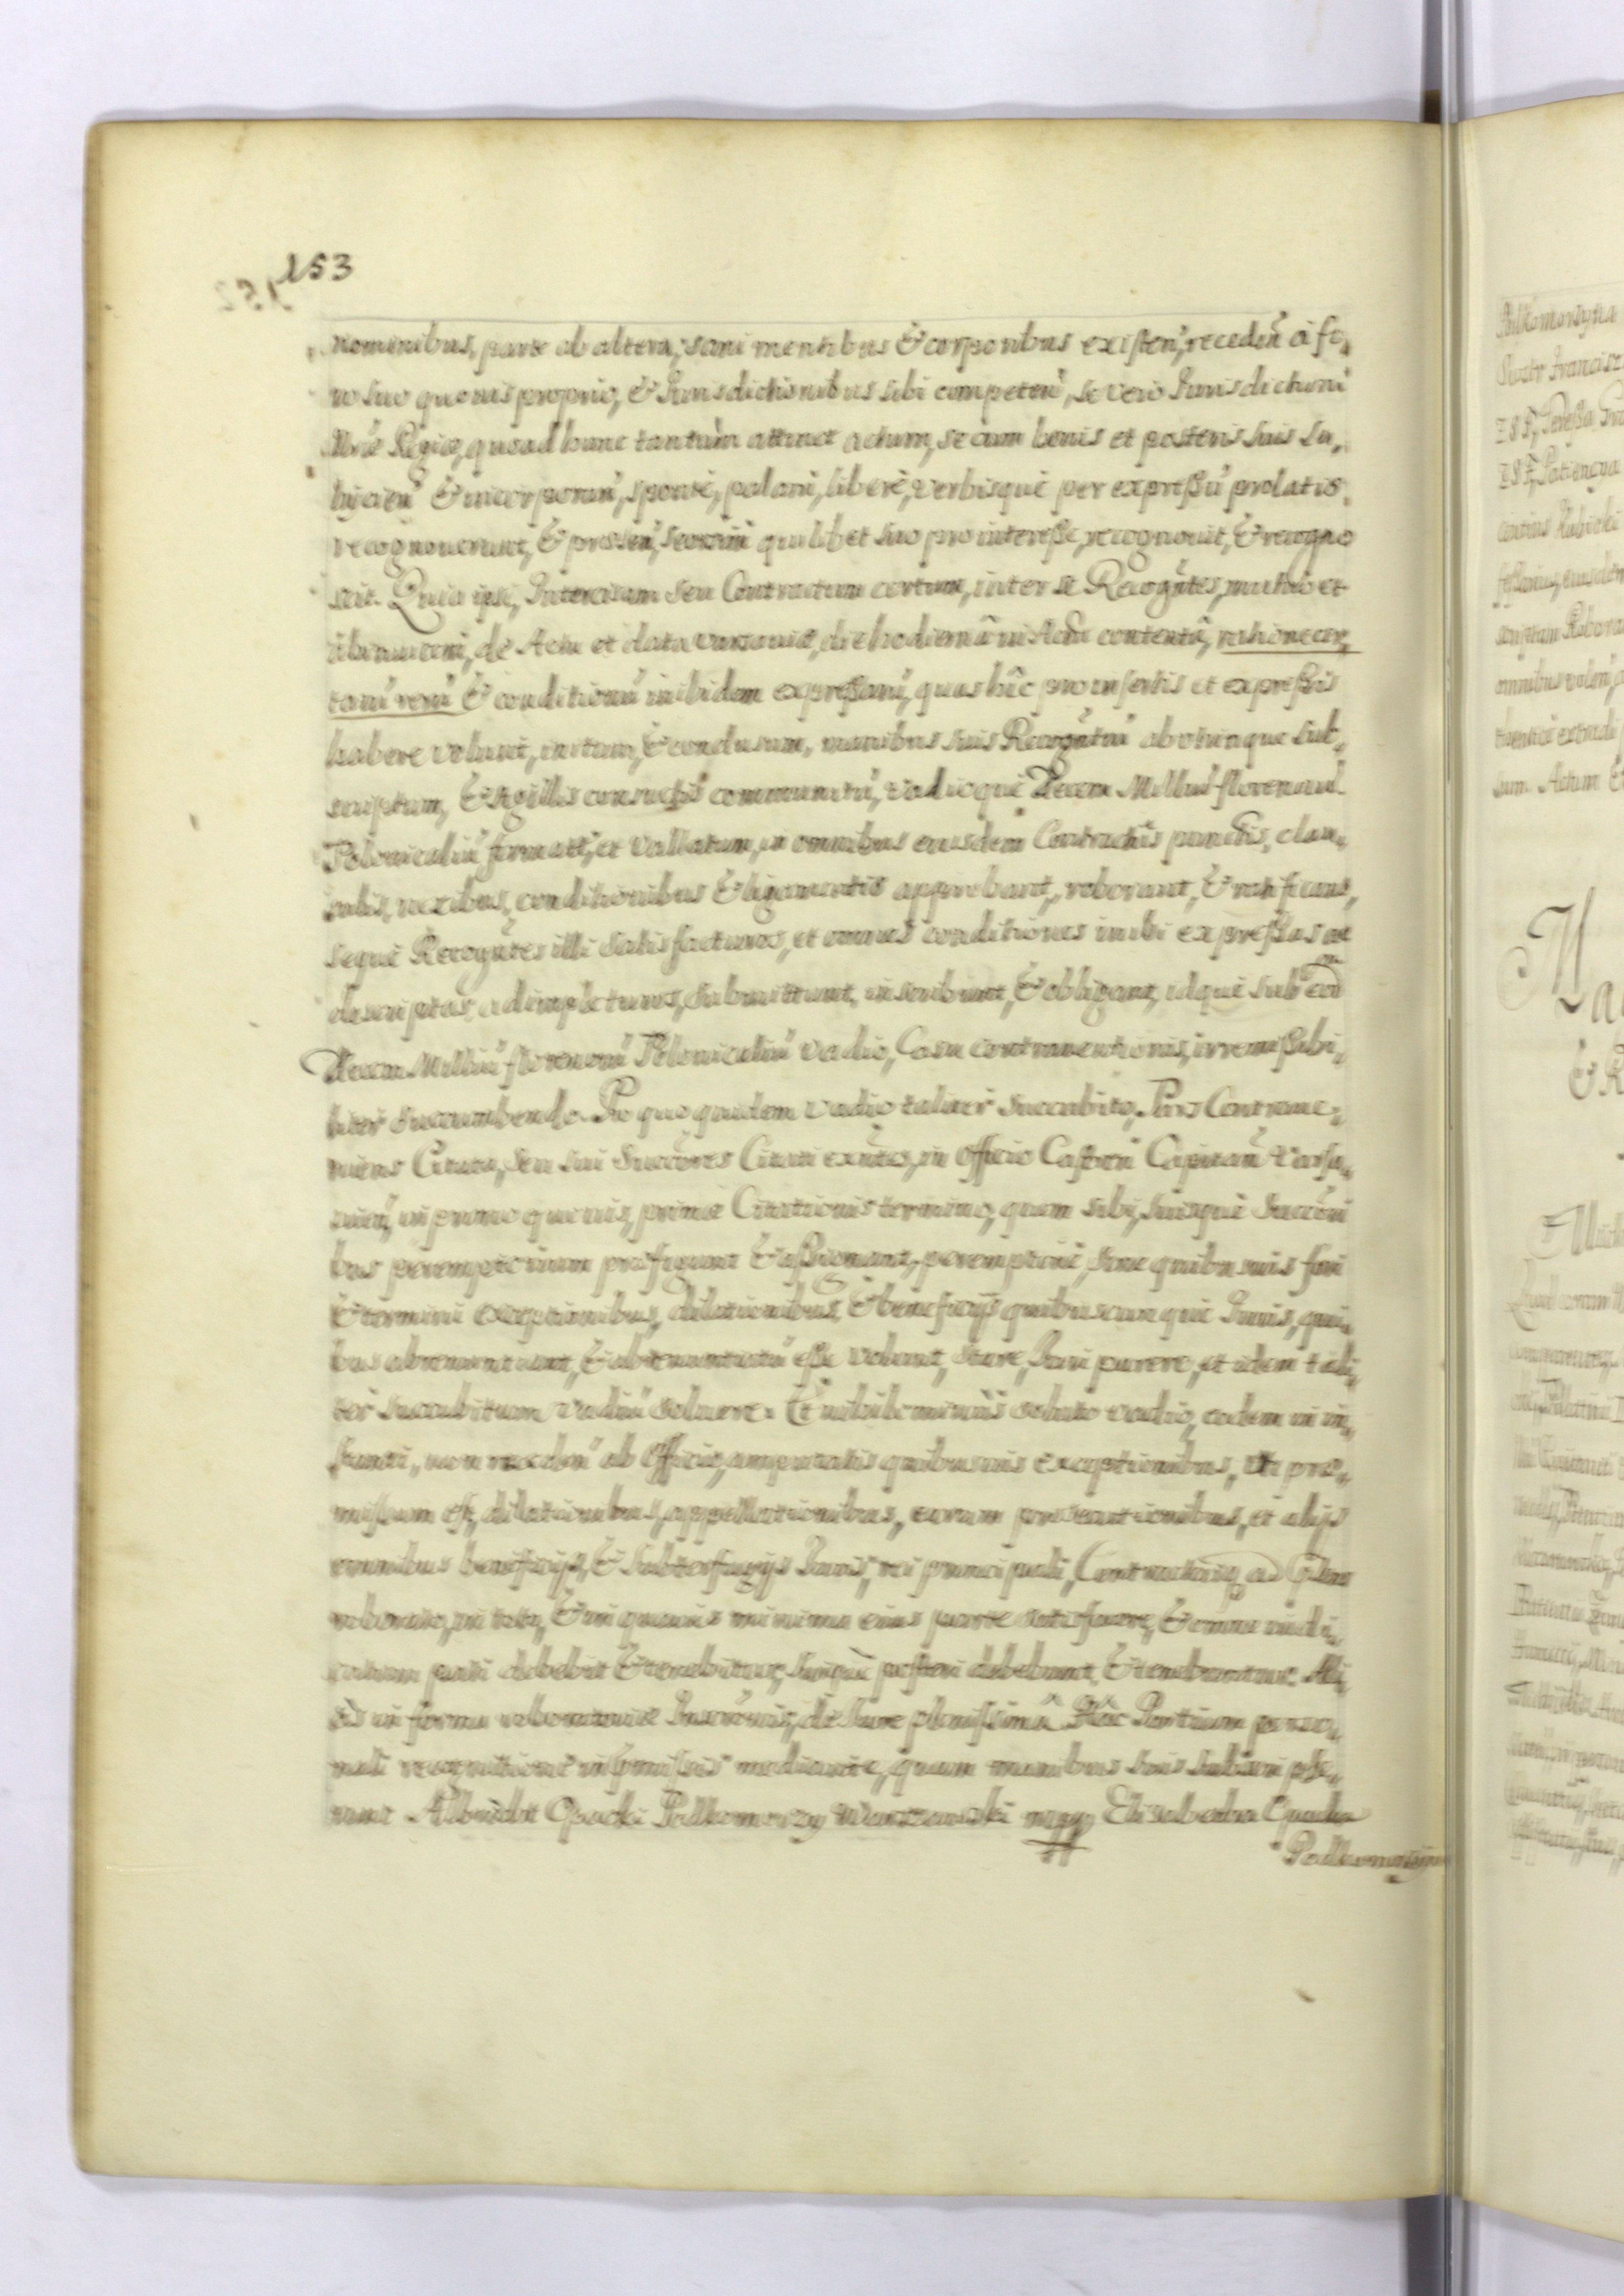 153
nominibus, parte ab altera, sani mentibus & corporibus existeñ, recedeñ à fo,
ro suo quouis proprio, & Jurisdictionibus sibi competeñ, se vero Jurisdictioni
Regiæ, quoad hunc tantùm attinet actum, se cum bonis et posteris suis su,
bijcieñ & incorporañ, sponte, palam, liberè, verbisque per expressũ prolatis
recognouerunt, & præseñ, seorsim quilibet suo pro interesse, recognouit, & recogno
scit. Quia ipsi, Intercisam seu Contractum certum, inter se Recogñtes, mutuò et
de Actu et data Varsauiæ, die hodiernâ in Actu contentâ, ratione cer,
tarũ rerũ & conditionũ inibidem expressarũ, quas hîc pro insertis et expressis
habere volunt, initum, & conclusum, manibus suis Recogñtiũ ab vtrinque sub,
scriptum, & sigillis consuetis communitũ, vadioque Decem Milliũ florenorũ
Polonicaliũ firmatũ, et vallatum, in omnibus eiusdem Contractûs punctis, clau,
sulis, nexibus, conditionibus & ligamentis approbant, roborant, & ratificant,
seque Recogñtes illi satisfacturos, et omnes conditiones inibi expressas ac
descriptas adimpleturos, submittunt, inscribunt, & obligant, idque sub eoď
Decem Milliũ florenorũ Polonicaliũ vadio, Casu contrauentionis, irremissibi,
liter succumbendo. Pro quo quidem vadio taliter succubito, Pars Contraue,
niens Citata, seu sui Succõres Citati exñtes, in Officio Castreñ Capitañ Varsa,
uieñ, in primo quouis, primæ Citationis termino, quem sibi, suisque Succõri
bus peremptorium præfigunt & assignant, peremptoriè, sine quibusuis fori
& termini exceptionibus, dilationibus, & beneficijs quibuscunque Juris, qui,
bus abrenunciant, & abrenunciatũ esse volunt, stare, Juri parere, et idem tali,
ter succubitum vadiũ soluere. Et nihilominùs soluto vadio, eodem in in,
stanti, non recedeñ ab Officio, amputatis quibusuis exceptionibus, vti præ,
missum est, dilationibus, appellationibus, earum prosecutionibus, et alijs
omnibus beneficijs, & subterfugijs Juris, rei principali, Contractuiq
roborato, in toto, & in quauis minima eius parte satisfacere, & omne iudi,
catum pati debebit & tenebitur, suique posteri debebunt & tenebuntur. Ali,
às in forma roboratoriæ Inscrõnis, de Jure plenissimâ. Hâc Partium perso,
nali recognitione in præmissis mediante, quam manibus suis subscripse,
runt. Albricht Opacki Podkomorzy Warszawski mpp Elisabetha Opacka
Podkomorzyna